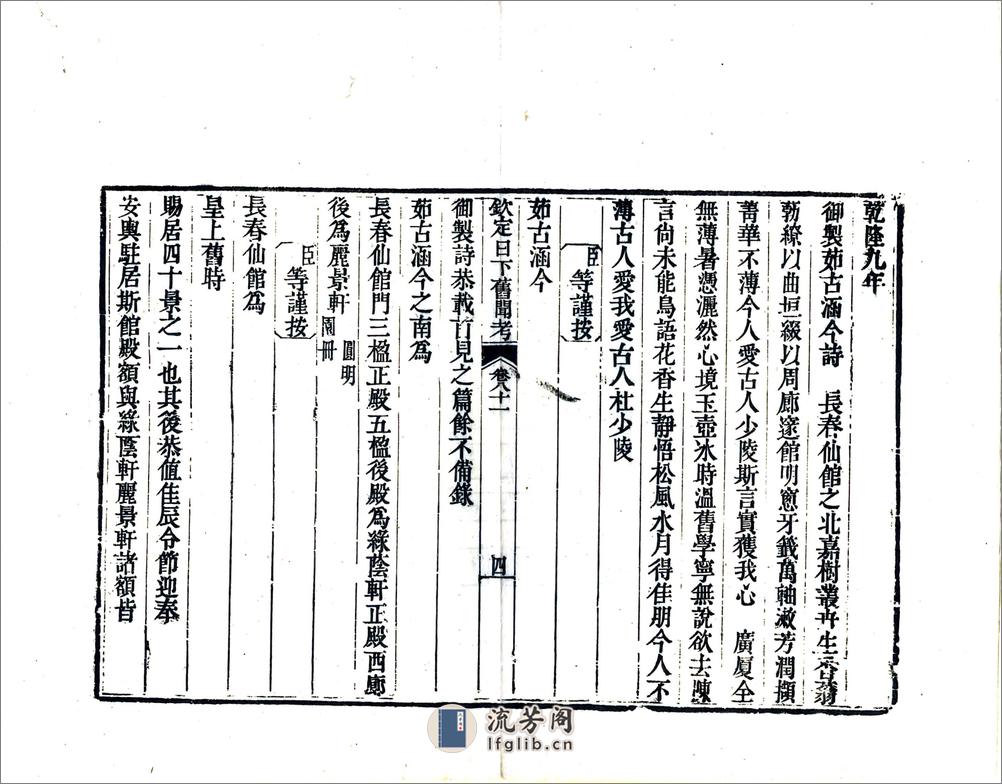 乾隆九年
御製茹古涵今詩　長春仙館之北嘉樹叢卉生香蓊
勃繚以曲垣綴以周廊邃館明窻牙籤萬軸漱芳潤擷
菁華不薄今人愛古人少陵斯言實獲我心　廣厦全
無薄暑憑灑然心境玉壺冰時溫舊學寧無說欲去陳
言尚未能鳥語花香生靜悟松風水月得佳朋今人不
薄古人愛我愛古人杜少陵
臣等謹按
茹古涵今
欽定日下舊聞考　卷八十一　四
御製詩恭載首見之篇餘不備錄
茹古涵今之南爲
長春仙館門三楹正殿五楹後殿爲綠蔭軒正殿西廊
後爲麗景軒圓明園冊
臣等謹按
長春仙館爲
皇上舊時
賜居四十景之一也其後恭值佳辰令節迎奉
安輿駐居斯館殿額與綠蔭軒麗景軒諸額皆
流芳阁
lfglib.cn